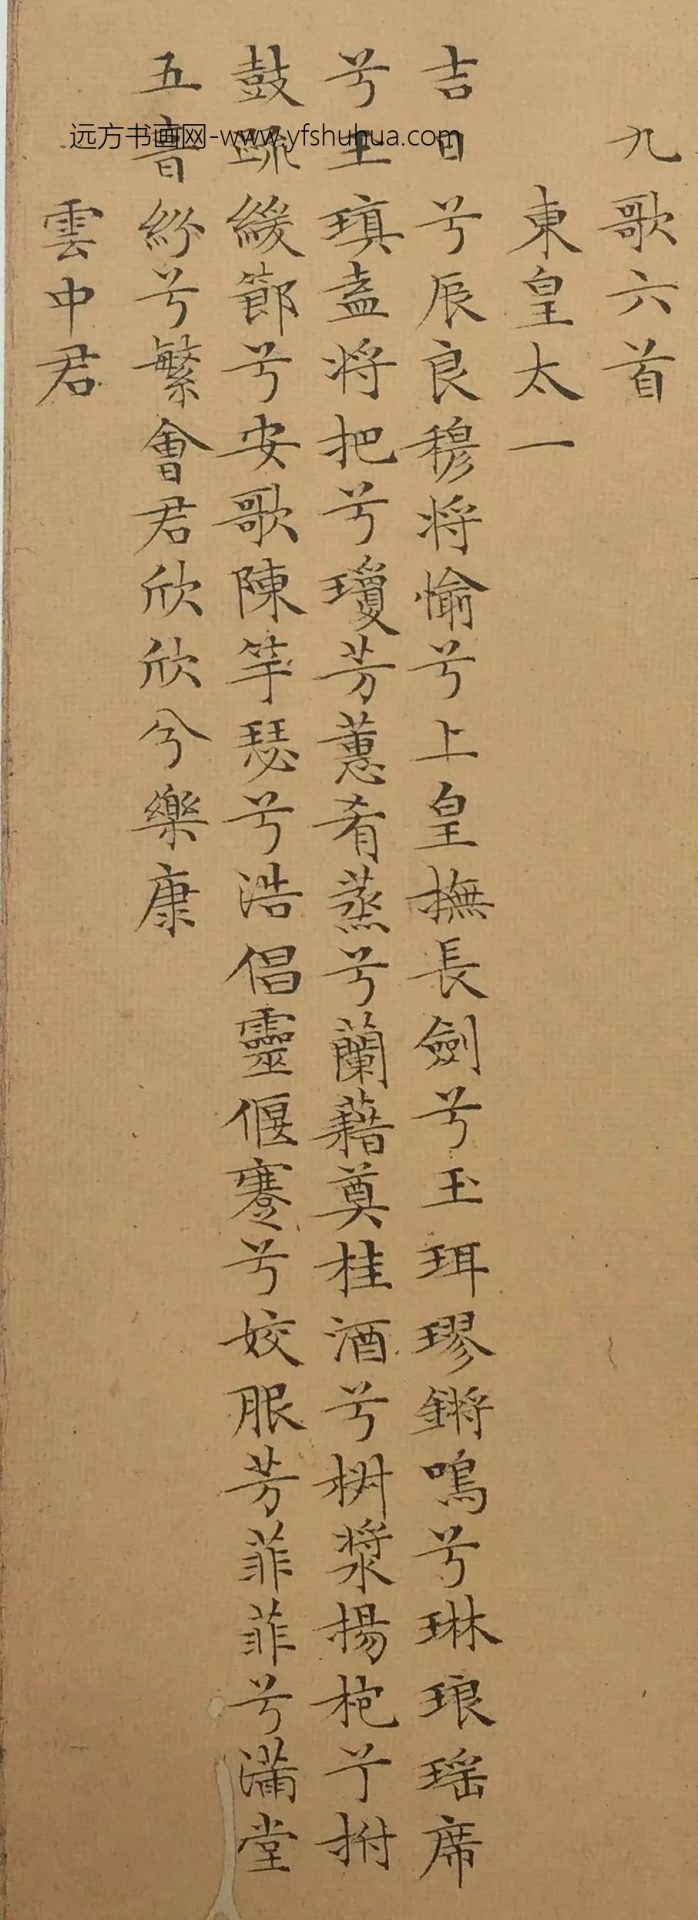 九歌六首
東皇太一
吉日兮辰良穆将愉兮上皇撫長劍兮玉珥璆鏘鳴兮琳琅瑶席
兮玉瑱盍将把兮瓊芳蕙肴蒸兮蘭藉奠桂酒兮椒漿揚枹兮拊
鼓疏緩節兮安歌陳竽瑟兮浩倡靈偃蹇兮姣服芳菲菲兮滿堂
五音紛兮繁會君欣欣兮樂康
雲中君
远方书画网-www.yfshuhua.com